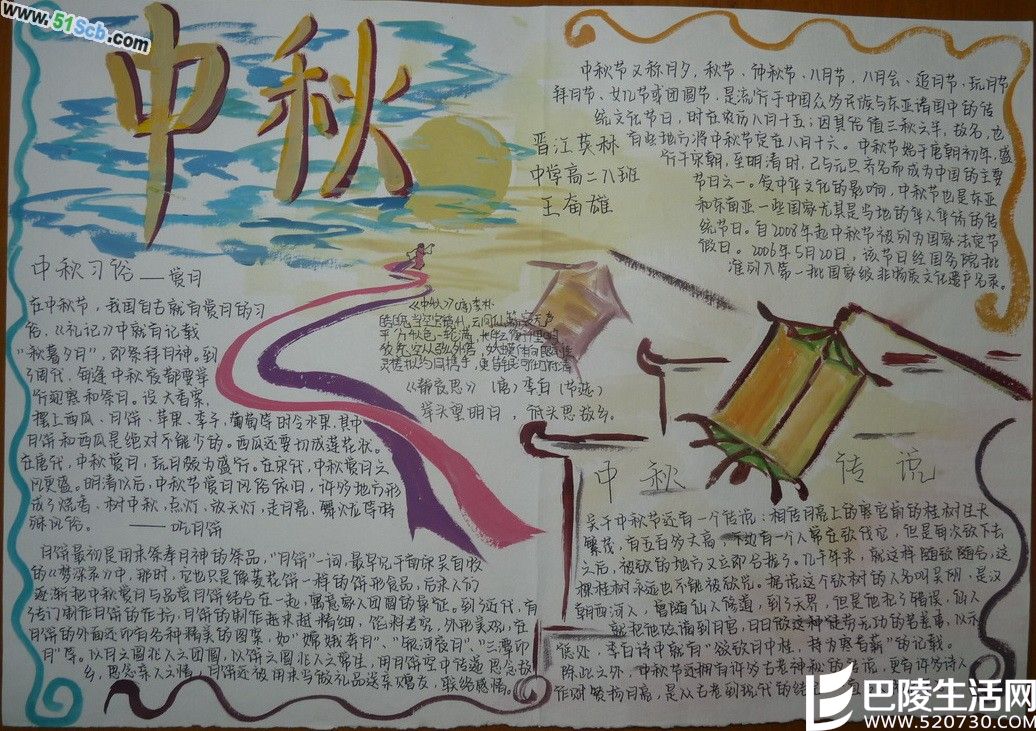 www.51Scb.com
中秋
中秋节又称月夕，秋节、仲秋节、八月节，八月会、追月节、玩月节
拜月节、女儿节或团圆节，是流行于中国众多民族与东亚诸国中的传
统文化节日，时在农历八月十五；因其恰值三秋之半，故名，也
有些地方将中秋节定在八月十六。中秋节始于唐朝初年，盛
行于宋朝，至明清时，已与元旦齐名而成为中国的主要
节日之一。受中华文化的影响，中秋节也是东亚
和东南亚一些国家尤其是当地的华人华侨的传
统节日。自2008年起中秋节被列为国家法定节
假日。2006年5月20日，该节日经国务院批
准列入第一批国家级非物质文化遗产名录。
晋江英林
中学高二八班
王奋雄
中秋习俗——赏月
在中秋节，我国自古就有赏月的习
俗，《礼记》中就有记载
“秋暮夕月”，即祭拜月神。到
了周代，每逢中秋夜都要举
行迎寒和祭月。设大香案，
摆上西瓜、月饼、苹果、李子、葡萄等时令水果，其中
月饼和西瓜是绝对不能少的。西瓜还要切成莲花状。
在唐代，中秋赏月，玩月颇为盛行。在宋代，中秋赏月之
风更盛。明清以后，中秋节赏月风俗依旧，许多地方形
成了烧香、树中秋，点灯、放天灯，走月亮，舞火龙等特
殊风俗。 ——吃月饼
月饼最初是用来祭奉月神的祭品，“月饼”一词，最早见于南宋吴自牧
的《梦粱录》中，那时，它也只是像菱花饼一样的饼形食品，后来人们
逐渐把中秋赏月与品尝月饼结合在一起，寓意家人团圆的象征。到了近代，有
了专门制作月饼的作坊，月饼的制作越来越精细，馅料考究，外形美观，在
月饼的外面还印有各种精美的图案，如“嫦娥奔月”、“银河夜月”、“三潭印
月”等。以月之圆兆人之团圆，以饼之圆兆人之常生，用月饼寄托思念故
乡，思念亲人之情，月饼还被用来当做礼品送亲赠友，联络感情。
《中秋》（唐）李朴
《静夜思》（唐）李白（节选）
举头望明月，低头思故乡。
中秋传说
关于中秋节还有一个传说：相传月亮上的广寒宫前的桂树生长
繁茂，有五百多丈高，下边有一个人常在砍伐它，但是每次砍下去
之后，被砍的地方又立即合拢了。几千年来，就这样随砍随合，这
棵桂树永远也不能被砍光。据说这个砍树的人名叫吴刚，是汉
朝西河人，曾随仙人修道，到了天界，但是他犯了错误，仙人
就把他贬谪到月宫，日日做这种徒劳无功的苦差事，以示
惩处，李白诗中就有“欲斫月中桂，持为寒者薪”的记载。
除此之外，中秋节还拥有许多古老神秘的传说，更有许多诗人
巴陵生活网
www.520730.com